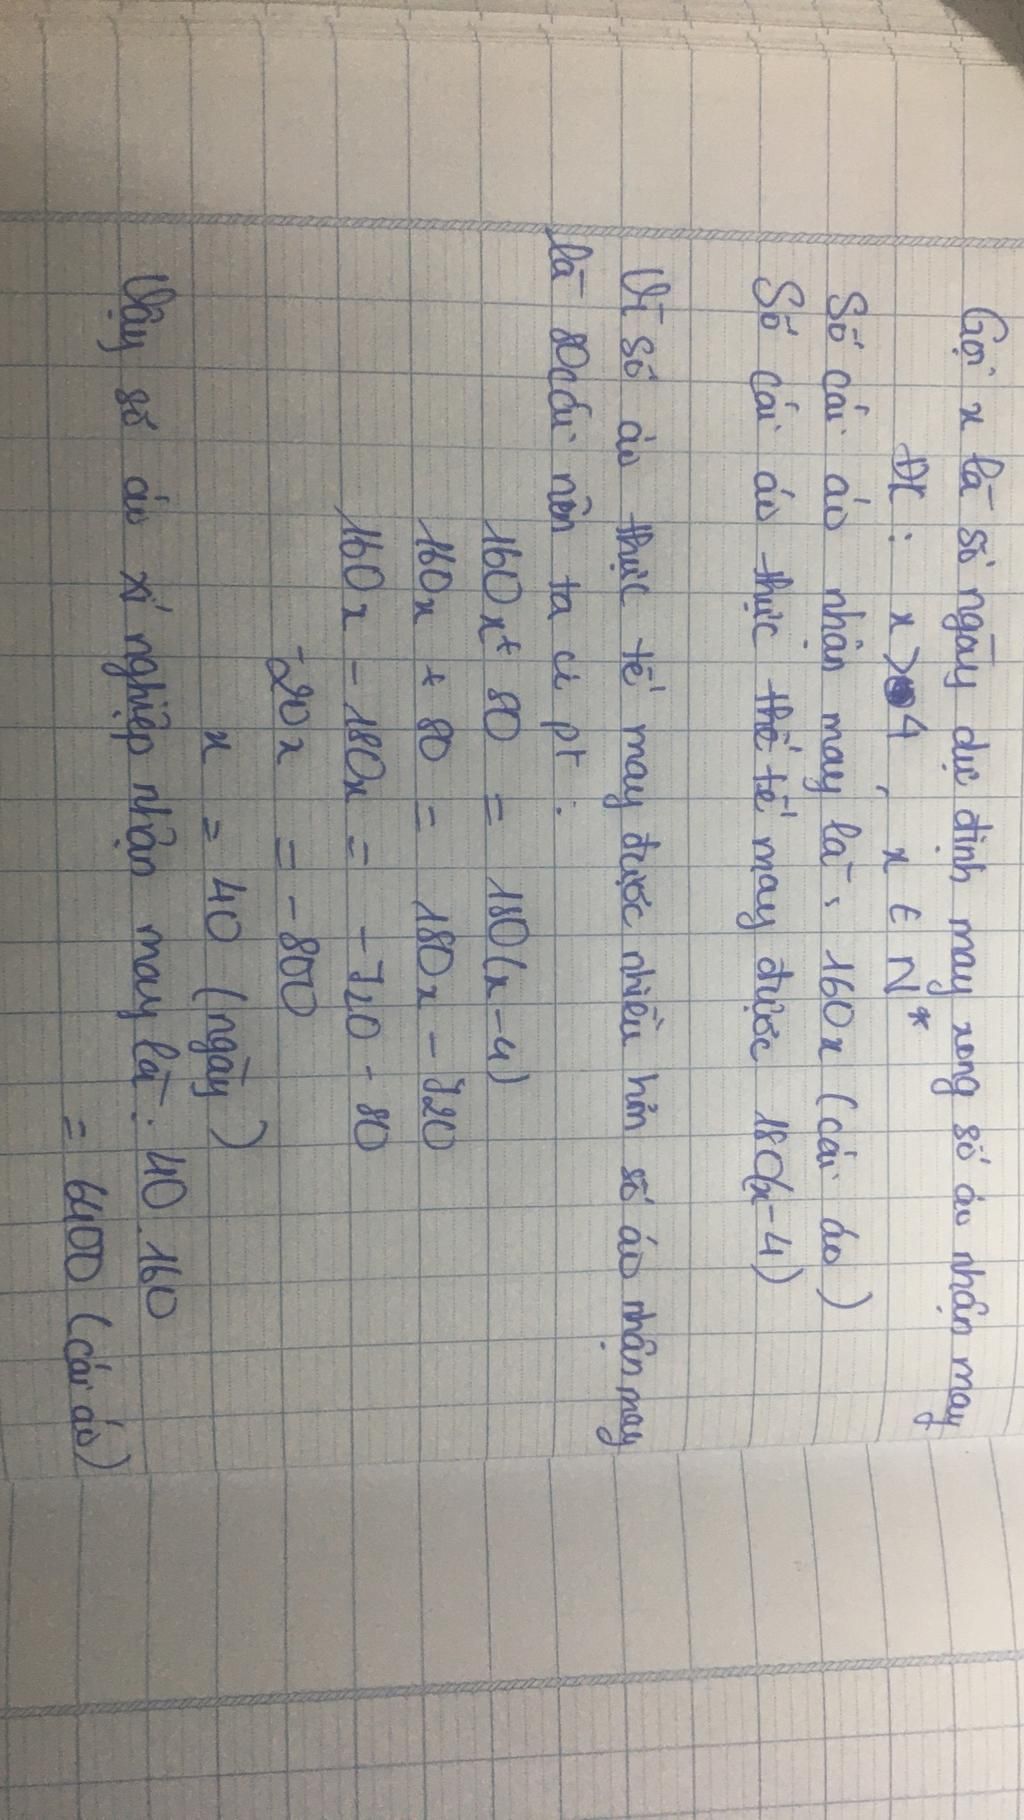 Gọi x là số ngày dự định may xong số áo nhận may
ĐK : x > 4 , x ∈ N*
Số cái áo nhận may là : 160x (cái áo)
Số cái áo thực thế tế may được 180(x-4)
Vì số áo thực tế may được nhiều hơn số áo nhận may
là 80 cái nên ta có pt :
160x + 80 = 180(x-4)
160x + 80 = 180x - 720
160x - 180x = -720 - 80
-20x = -800
x = 40 (ngày)
Vậy số áo xí nghiệp nhận may là : 40.160
= 6400 (cái áo)